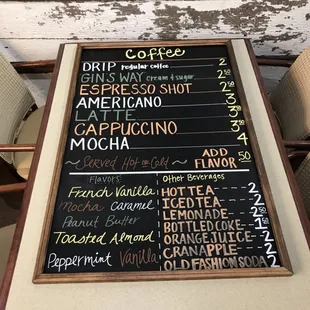 Coffee
DRIP regular coffee 2
GIN'S WAY cream & sugar 2.50
ESPRESSO SHOT 2.50
AMERICANO 3
LATTE 3.50
CAPPUCCINO 3.50
MOCHA 4
~Served Hot or Cold~ ADD FLAVOR .50
Flavors:
French Vanilla
Mocha Caramel
Peanut Butter
Toasted Almond
Peppermint Vanilla
Other Beverages
HOT TEA 2
ICED TEA 2
LEMONADE 2.50
BOTTLED COKE 2
ORANGE JUICE 2
CRANAPPLE 2
OLD FASHION SODA 2